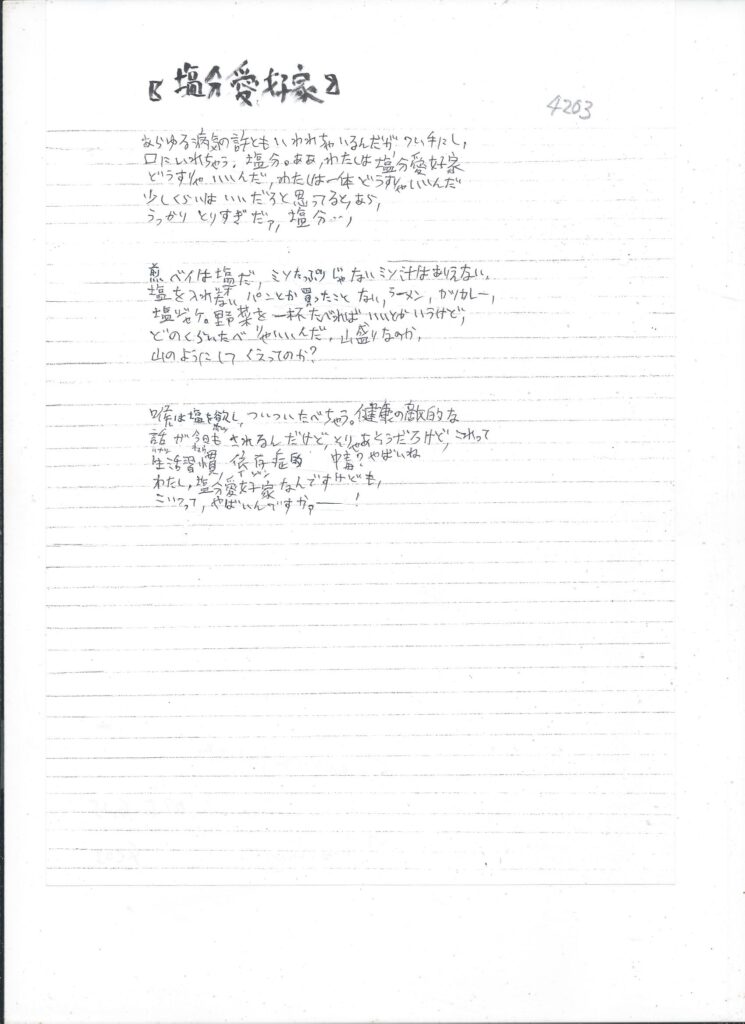 【塩分愛好家】
4203
あらゆる病気の許ともいわれちゃいるんだが、ワい手にし、
口にいれちゃう、塩分。ああ、わたしは塩分愛好家
どうすりゃいいんだ、わたしは一体どうすりゃいいんだ
少しくらいはいいだろと思ってると、あら、
うっかりとりすぎだァ、塩分…、
煎ベイは塩だ、ミソたっぷりじゃないミソ汁はありえない、
塩を入れないパンとか買ったことない、ラーメン、カツカレー、
塩ジャケ。野菜を一杯たべればいいとかいうけど、
どのくらいたべりゃいいんだ、山盛りなのか、
山のようにしてくえってのか?
喉は塩を欲し、ついついたべちゃう。健康の敵的な
話が今日もされるしだけど、そりゃあそうだろけど、これって
生活習慣 依存症的 中毒?やばいね
わたし、塩分愛好家なんですけども、
こいつって、やばいんですかァ――!